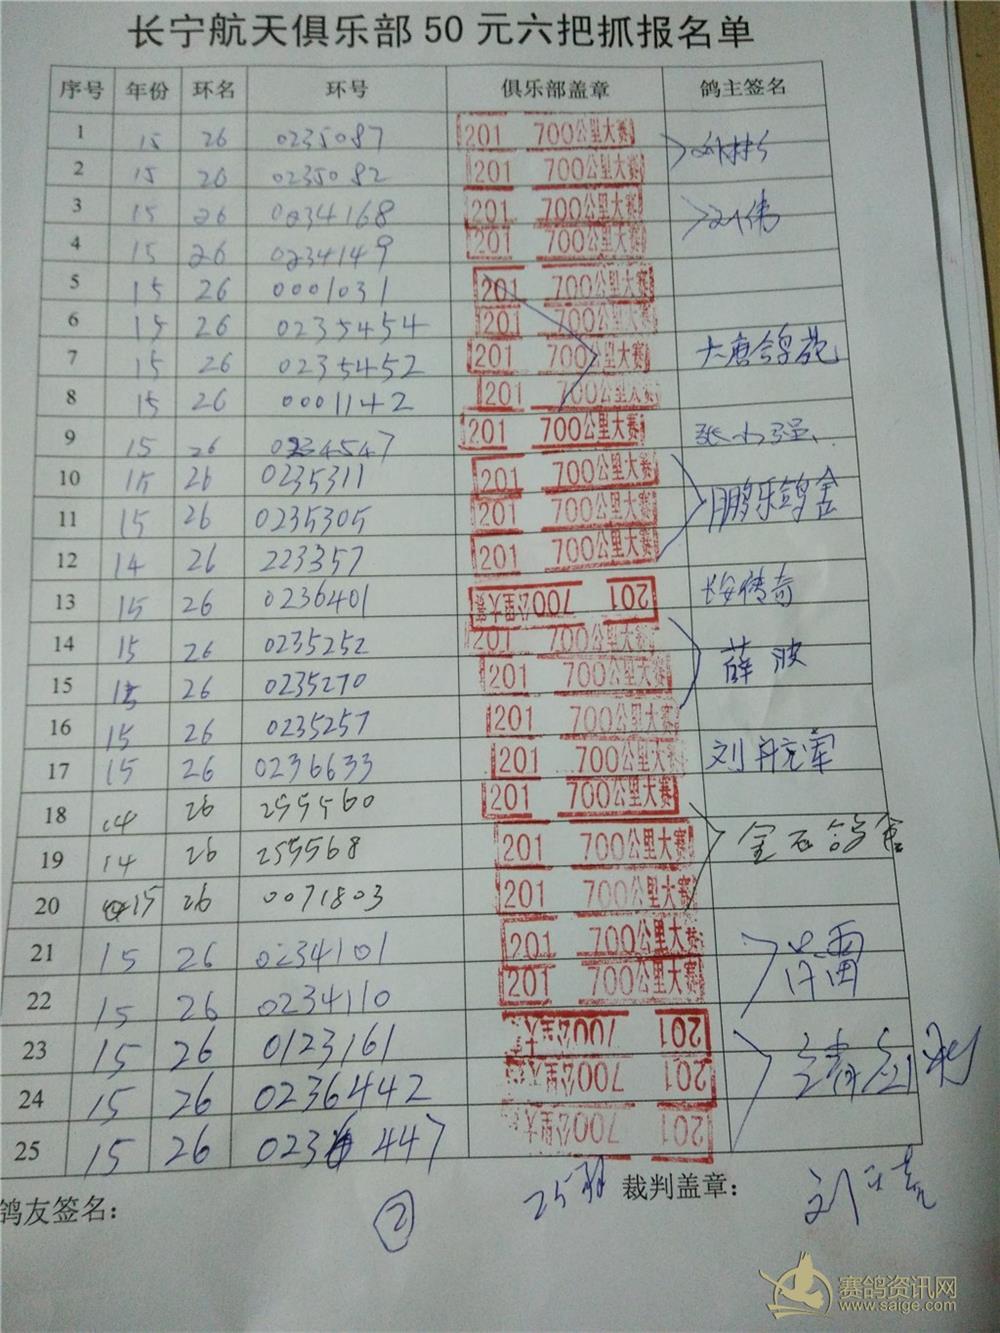 长宁航天俱乐部50元六把抓报名单
序号 年份 环名 环号 俱乐部盖章 鸽主签名
1 15 26 0235087 201 700公里大赛
2 15 26 0235082 201 700公里大赛
3 15 26 0234168 201 700公里大赛 刘伟
4 15 26 0234149 201 700公里大赛
5 15 26 0001031 201 700公里大赛
6 15 26 0235454 201 700公里大赛
7 15 26 0235452 201 700公里大赛 大唐鸽苑
8 15 26 0001142 201 700公里大赛
9 15 26 0234547 201 700公里大赛 张小强
10 15 26 0235311 201 700公里大赛
11 15 26 0235305 201 700公里大赛 鹏乐鸽舍
12 14 26 223357 201 700公里大赛
13 15 26 0236401 201 700公里大赛 长安传奇
14 15 26 0235252 201 700公里大赛
15 15 26 0235270 201 700公里大赛 薛
16 15 26 0235257 201 700公里大赛
17 15 26 0236633 201 700公里大赛 刘
18 14 26 255560 201 700公里大赛
19 14 26 255568 201 700公里大赛 金石鸽舍
20 15 26 0071803 201 700公里大赛
21 15 26 0234101 201 700公里大赛
22 15 26 0234110 201 700公里大赛
23 15 26 0123161 201 700公里大赛
24 15 26 0236442 201 700公里大
25 15 26 0236447 201 700公里大
鸽友签名： ② 25羽 裁判盖章： 刘
赛鸽资讯网
www.saige.com